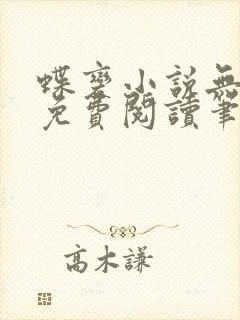 蝶變小說無
免費閱讀筆
高木謙